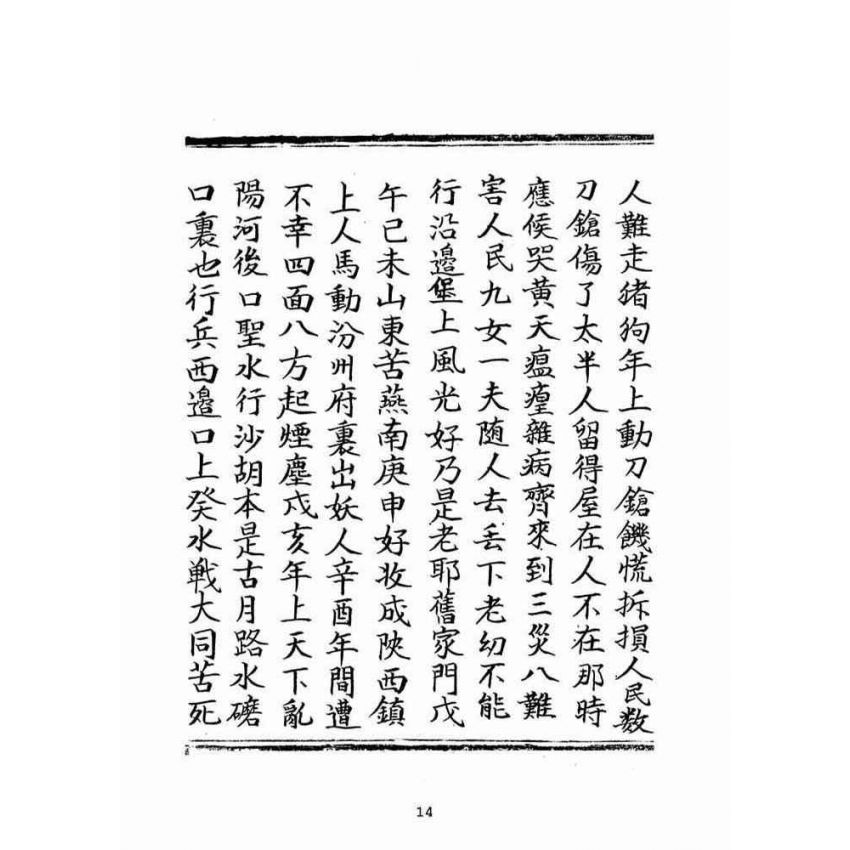 人難走猪狗年上動刀鎗饑慌拆損人民数
刀鎗傷了太半人留得屋在人不在那時
應候哭黄天瘟㾮雜病齊來到三災八難
害人民九女一夫随人去丢下老幼不能
行沿邊堡上風光好乃是老耶舊家門戊
午己未山東苦燕南庚申好妆成陜西鎮
上人馬動汾州府裏出妖人辛酉年間遭
不幸四面八方起煙塵戍亥年上天下亂
陽河後口聖水行沙胡本是古月路水磨
口裏也行兵西邊口上癸水戦大同苦死
14